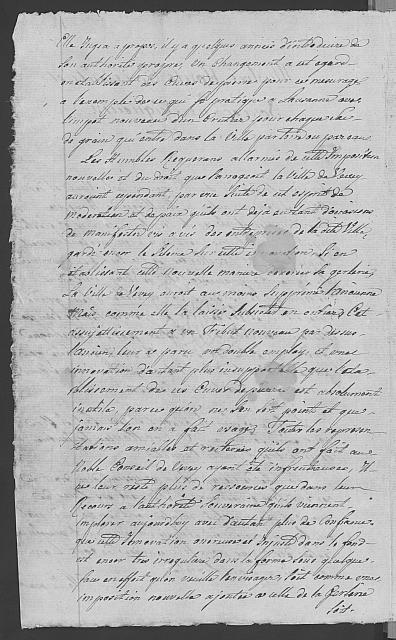 Elle Jugea a propos, il y a quelques années d'introduire de
Son authorité propre, Un changement a cet egard
en etablissant des Cuves de pierre pour ce mesurage
a l'exemple de ce qui se pratique a Lausanne avec
l'impot nouveau d'un Crutzer pour chaque sac
de grain qui entre dans la Ville par terre ou par eau
Les Humbles Requerans allarmés de cette Imposition
nouvelle et du droit que s'arrogeoit la Ville de Vevey
auroient cependant, par une Suite de cet esprit de
moderation et de paix qu'ils ont deja eu tant d'occasions
de manifester vis a vis des entreprises de la dite Ville,
gardé encor le Silence Sur cette Si en
etablissant cette nouvelle maniere
La Ville de Vevey avoit au moins Supprimé l'ancienne
Mais comme elle la laissé Subsister en entier, Cet
assujettissement a un Tribut nouveau par dessus
l'ancien, leur a paru un double employ, et une
innovation d'autant plus insupportable que l'eta-
blissement des ces Cuves de pierre est absolument
inutile, parce qu'on ne s'en sert point et que
jamais l'on en a fait usage; Toutes les represen-
tations amiables et reiterées qu'ils ont fait au
Noble Conseil de Vevey ayant été infructueuses, Il
ne leur reste plus de ressources que dans leur
Recours a l'authorité Souveraine qu'ils viennent
implorer aujourdhuy avec d'autant plus de Confiance,
que cette Innovation onereuse et Injuste dans le fond
est encor tres irreguliere dans la forme Sous quelque
face en effet qu'on veuille l'envisager, Soit comme une
imposition nouvelle ajoutée a celle de la
Soit